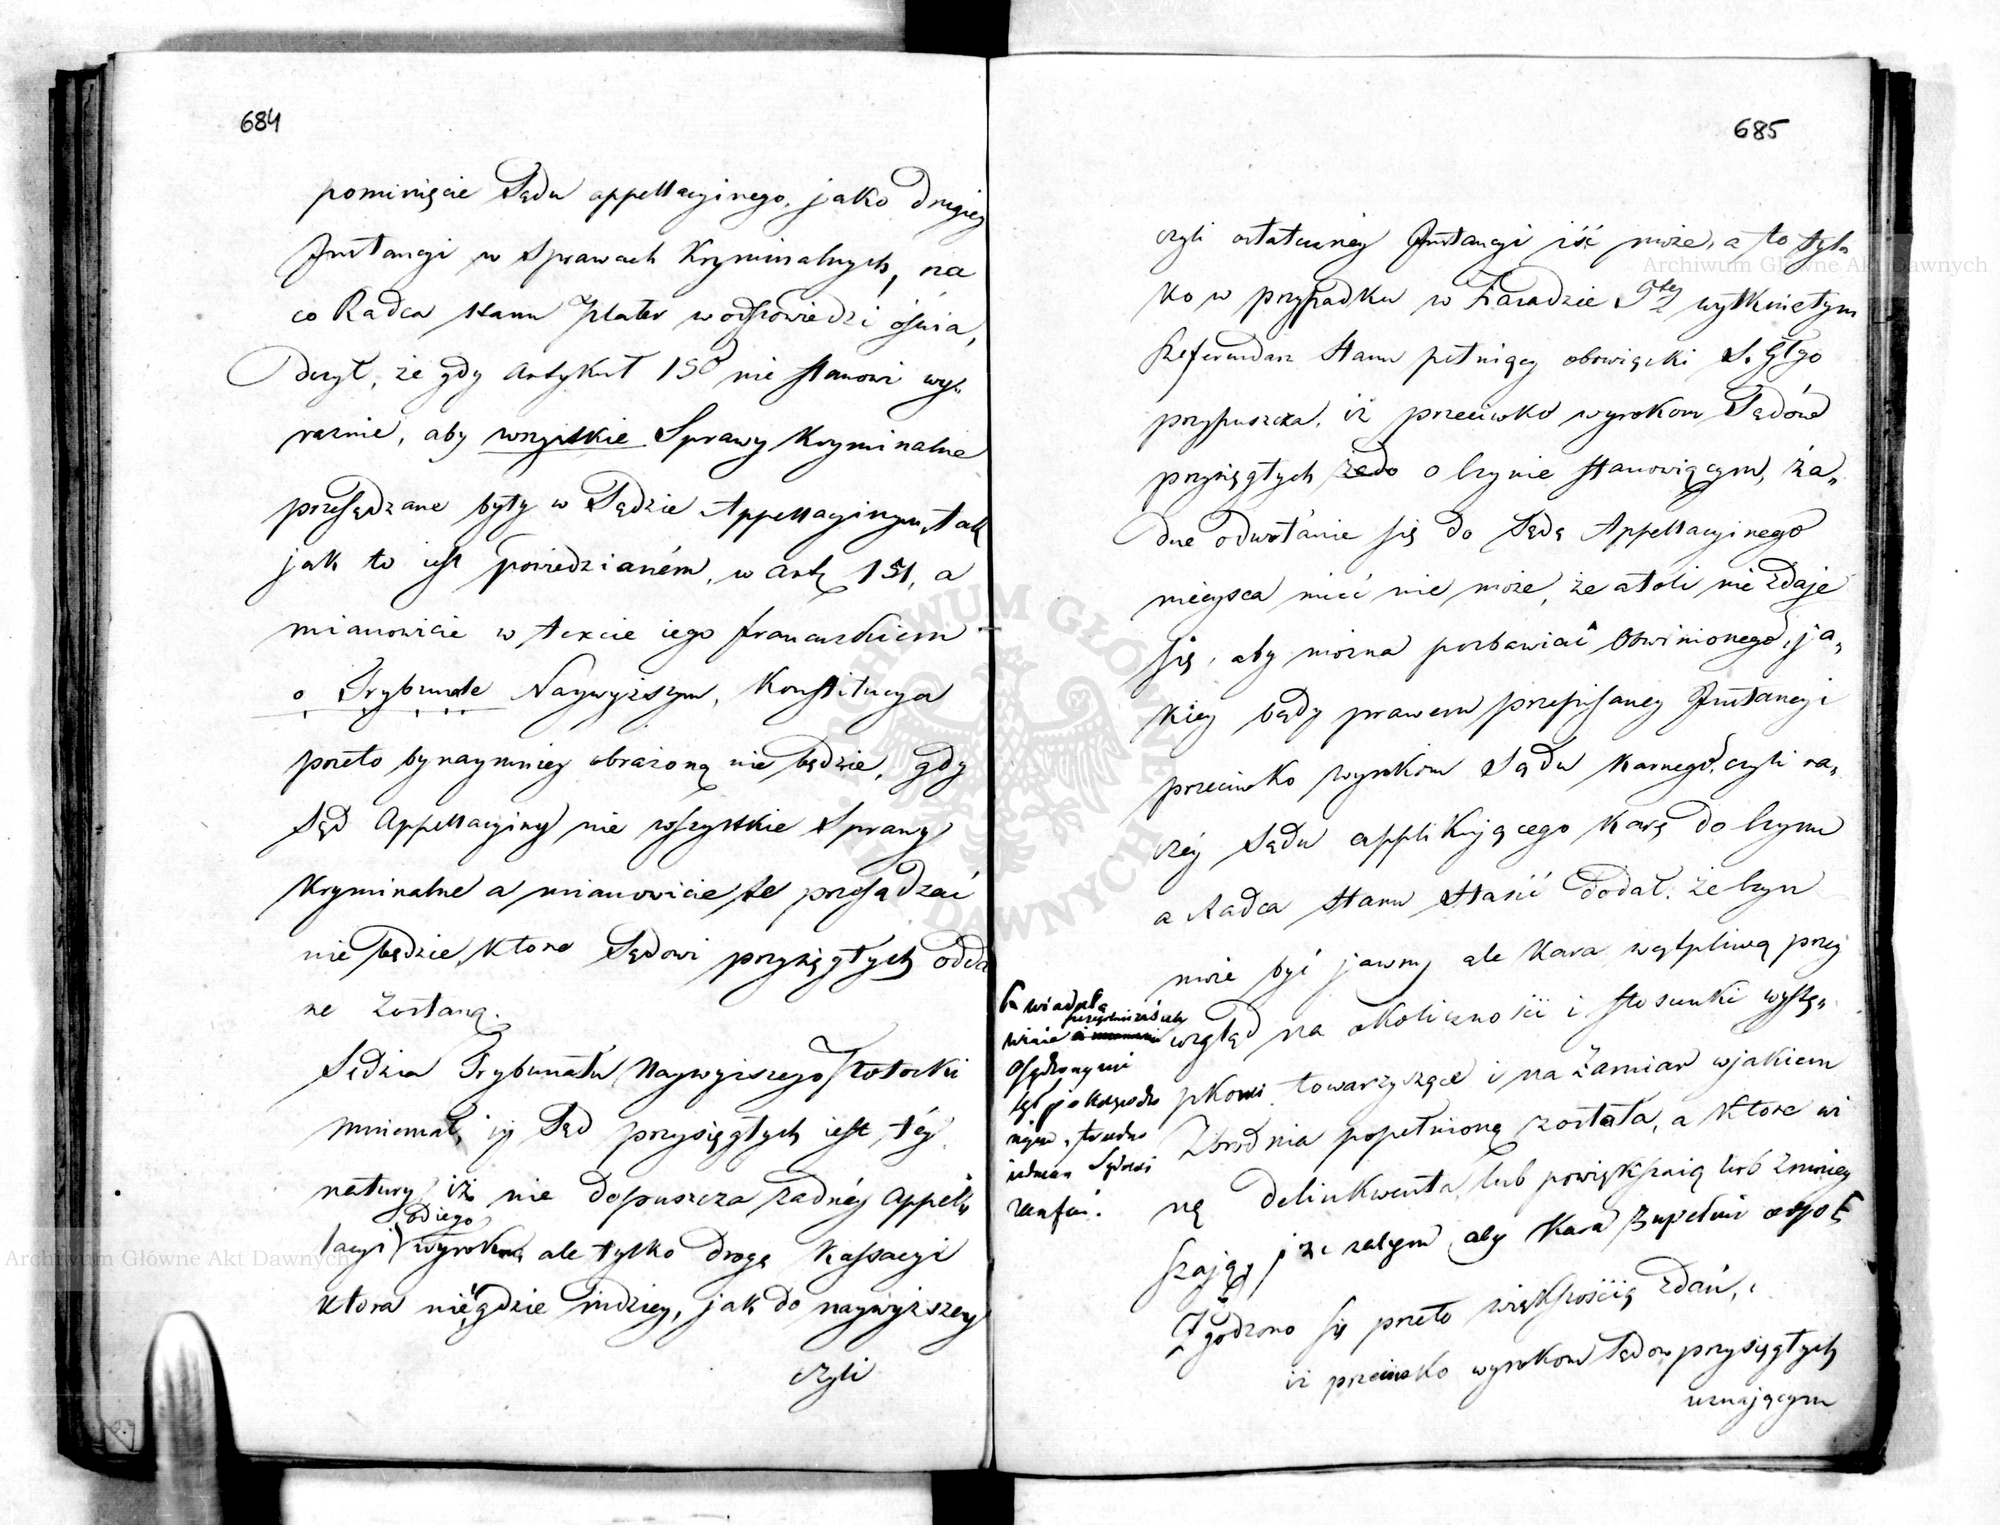 684
pominięcie Sądu appellacyinego, jako drugiey
Instancyi w Sprawach Kryminalnych, na
co Radca Stanu Plater w odpowiedzi oświa„
dczył, że gdy Artykuł 150 nie stanowi wy„
raźnie, aby wszystkie Sprawy Kryminalne
przesądzane były w Sądzie Appellacyinym, tak
jak to iest powiedzianém, w Art. 151, a
mianowicie w texcie iego francuzkiem
o Trybunale Naywyższym, Konstitucya
przeto bynaymniey obrażoną nie będzie, gdy
Sąd Appellacyiny nie wszystkie Sprawy
Kryminalne a mianowicie te przesądzać
nie będzie, które Sądowi przysięgłych odda
ne zostaną.
Sędzia Trybunału Naywyższego Potocki
mniemał, iż Sąd przysięgłych iest téy
natury, iż nie dopuszcza żadnéy Appel„
lacyi od iego wyroku ale tylko drogę Kassacyi
która nie gdzie indziey, jak do naywyższey
czyli
685
czyli ostateczney Instancyi iść może, a to tyl„
ko w przypadku w Zasadzie 9tey wytkniętym
Referendarz Stanu pełniący obowiązki S. Głgo
przypuszcza, iż przeciwko wyrokom Sądów
przysięgłych o czynie stanowiącym, ża„
dne odwołanie się do Sądu Appellacyinego
mieysca mieć nie może, że atoli nie zdaje
się, aby można pozbawiać obwinionego, ja„
kiey bądź prawem przepisaney Instancyi
przeciwko wyrokom Sądu Karnego, czyli ra„
czéy Sądu applikującego karę do czynu
a Radca Stanu Stasic dodał: że czyn
może być jawny ale kara wątpliwą przez
wzgląd na okoliczności i stosunki wystę„
pkowi towarzyszące i na zamiar w jakiem
Zbrodnia popełnioną została, a które wi
nę delinkwenta lub powiększaią lub zmniey
szają, że zatym aby kara zupełnie
Zgodzono się przeto większością zdań,
iż przeciwko wyrokom Sądów przysięgłych
uznającym
osądzonymi
zaufać.